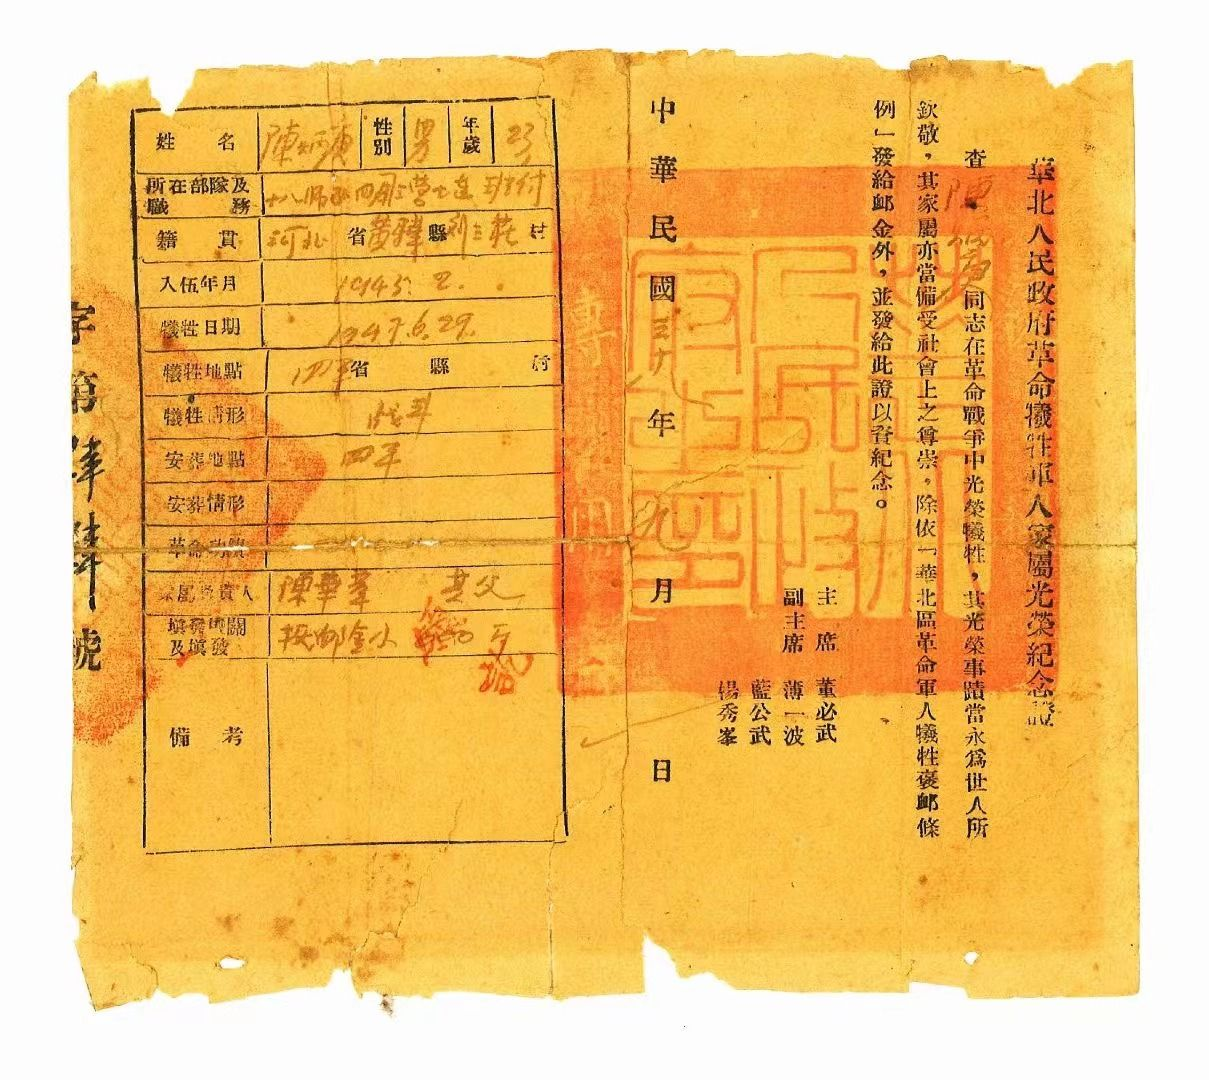 華北人民政府革命犧牲軍人家屬光榮紀念證
查陳
同志在革命戰爭中光榮犧牲，其光榮事蹟當永爲世人所
欽敬，其家屬亦當備受社會上之尊崇，除依「華北區革命軍人犧牲褒卹條
例」發給卹金外，並發給此證以資紀念。
主席 董必武
副主席 薄一波
藍公武
楊秀峯
中華民國三十 年九月 日
姓名 陳炳 性別 男 年歲 23
所在部隊及職務 十八師 四團 營七連
籍貫 河北省黃驊縣 莊村
入伍年月 1945.2.
犧牲日期 1947.6.29.
犧牲地點 四平省 縣 村
犧牲情形 戰斗
安葬地點 四平
安葬情形
革命功績
家屬負責人 陳華 其父
填發機關及填發 撫卹金
備考
字第 號